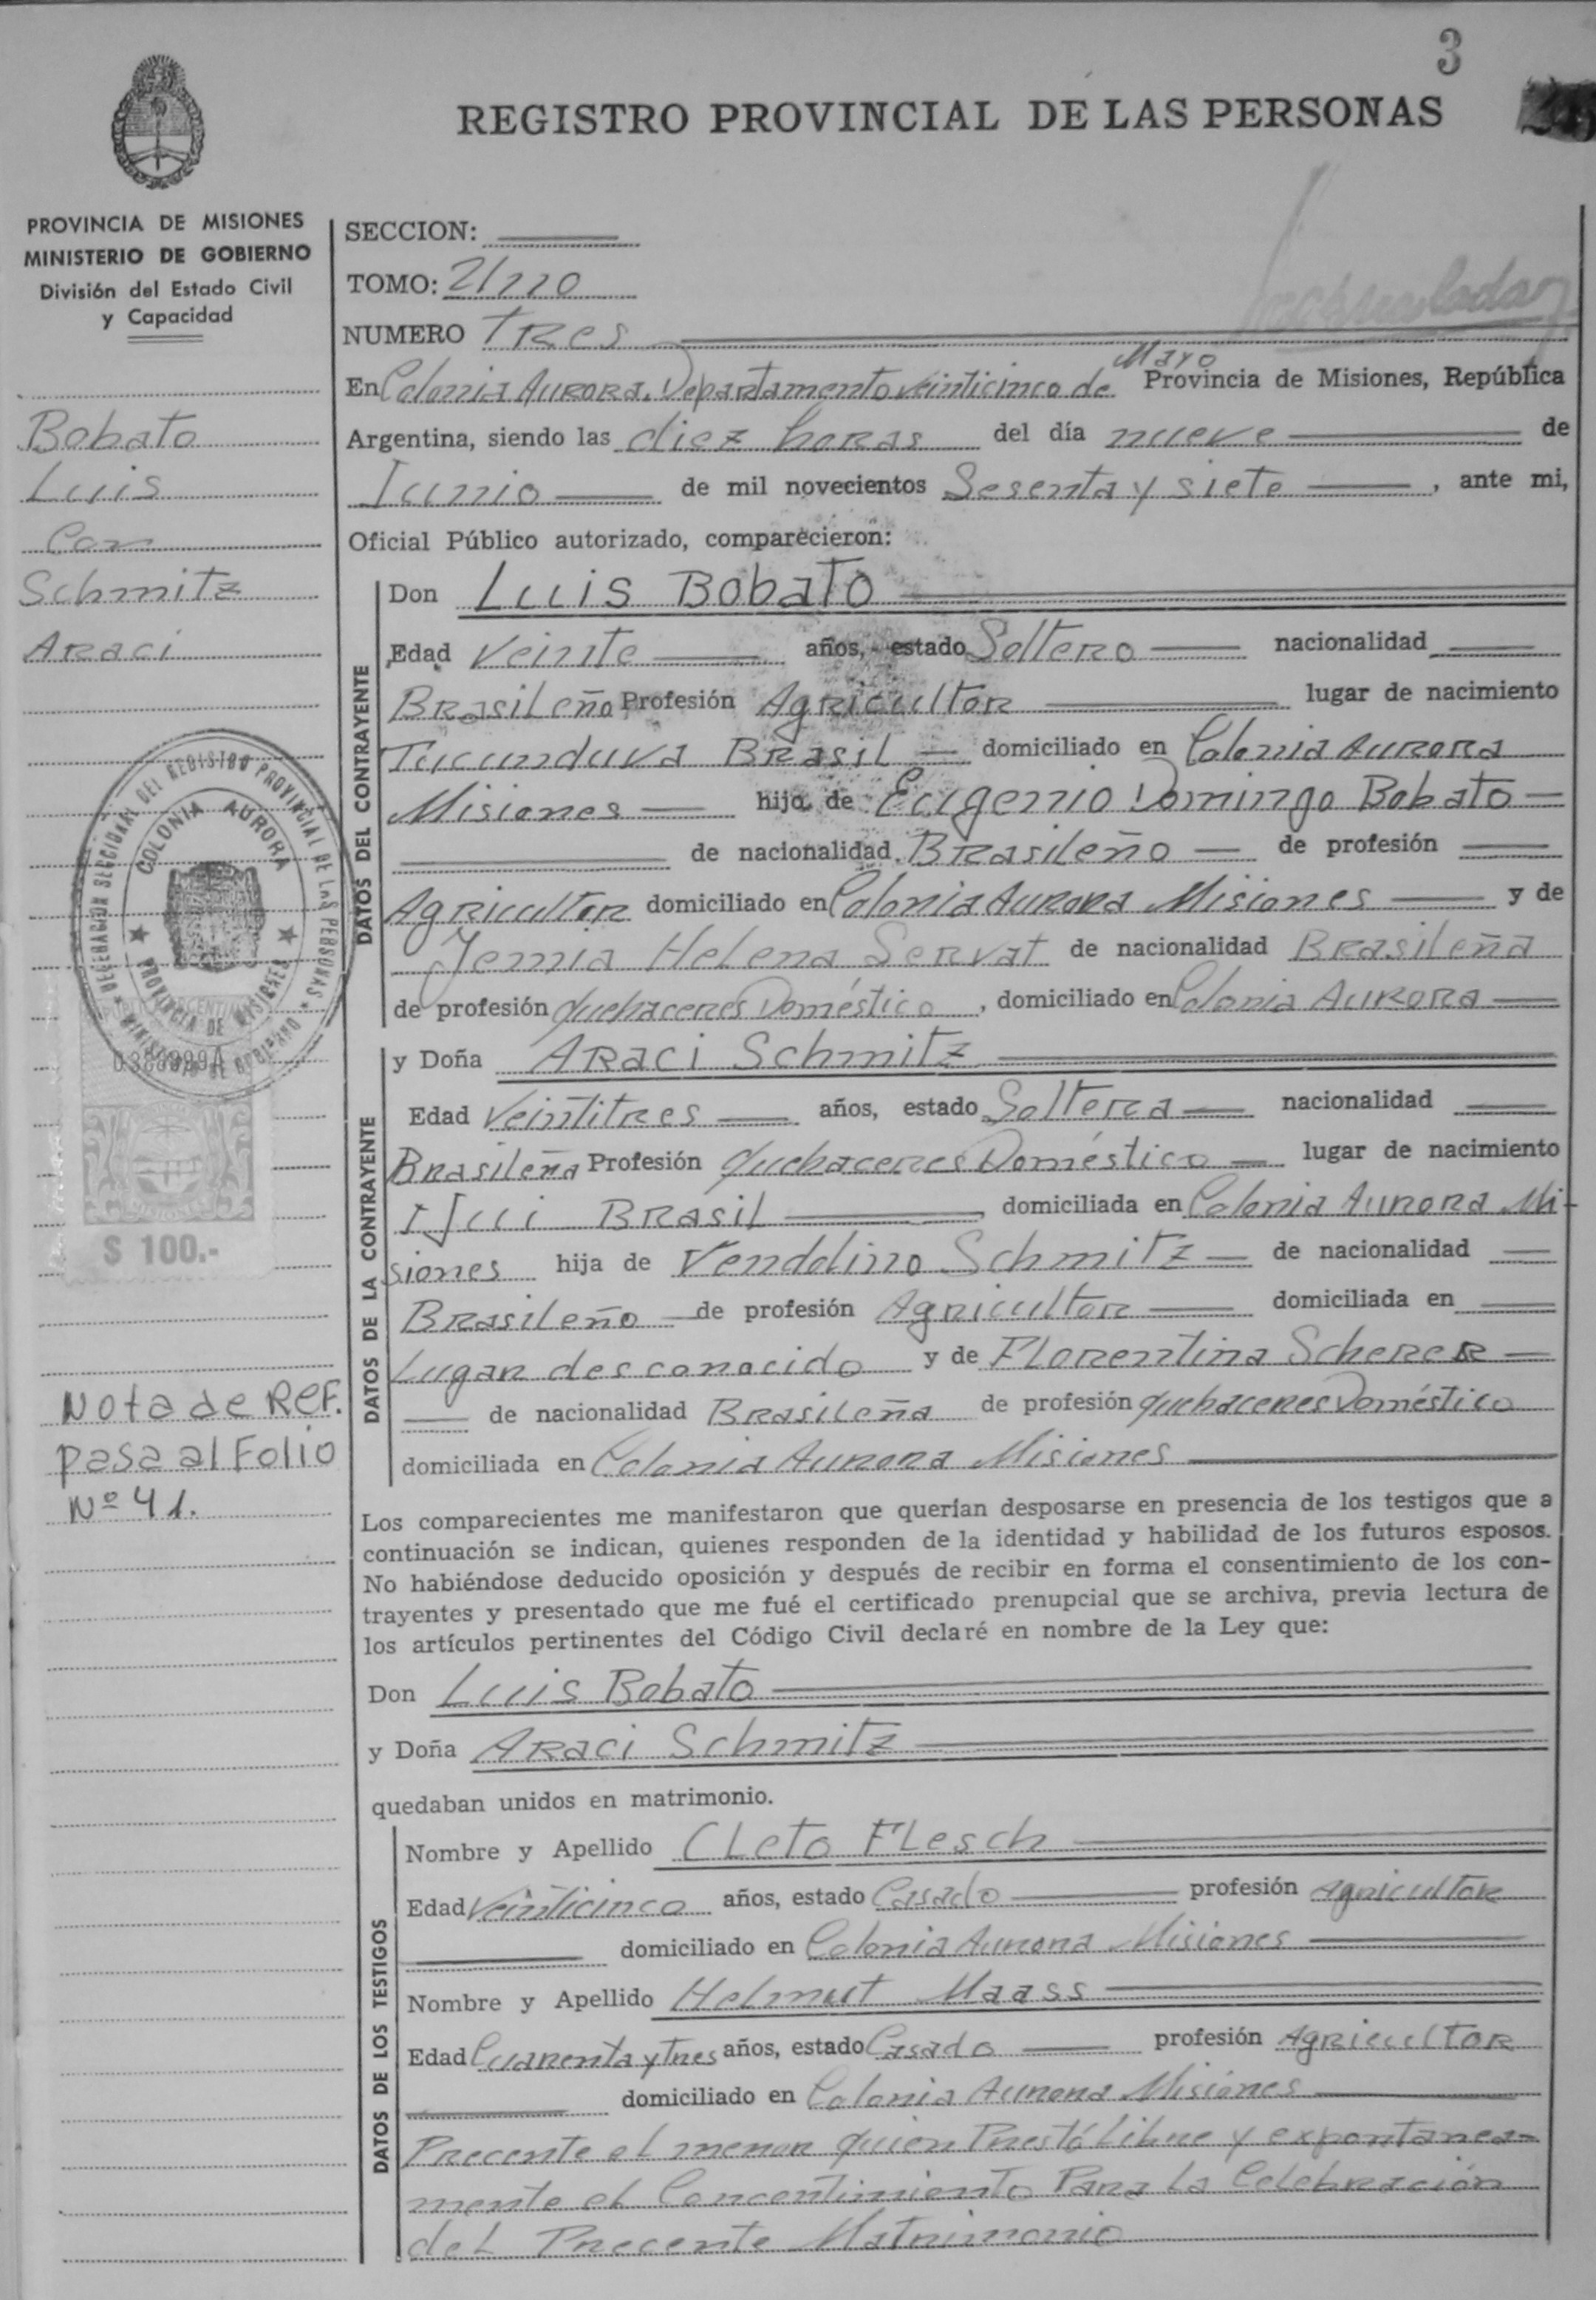 3
REGISTRO PROVINCIAL DE LAS PERSONAS
PROVINCIA DE MISIONES
MINISTERIO DE GOBIERNO
División del Estado Civil
y Capacidad
SECCION:
TOMO: 2/110
NUMERO Tres
En Colonia Aurora, Departamento Veinticinco de Mayo Provincia de Misiones, República
Argentina, siendo las diez horas del día nueve de
Junio de mil novecientos Sesenta y siete, ante mi,
Oficial Público autorizado, comparecieron:
Bobato
Luis
Con
Schmitz
Araci
DATOS DEL CONTRAYENTE
Don Luis Bobato
Edad Veinte años, estado Soltero nacionalidad
Brasileño Profesión Agricultor lugar de nacimiento
Tucunduva Brasil domiciliado en Colonia Aurora
Misiones hijo de Eugenio Domingo Bobato
de nacionalidad Brasileño de profesión
Agricultor domiciliado en Colonia Aurora Misiones y de
Jenia Helena Servat de nacionalidad Brasileña
de profesión quehaceres Doméstico, domiciliado en Colonia Aurora
DELEGACION SECCIONAL DEL REGISTRO PROVINCIAL DE LAS PERSONAS
COLONIA AURORA
PROVINCIA DE MISIONES
MINISTERIO DE GOBIERNO
MISIONES
$ 100.-
DATOS DE LA CONTRAYENTE
y Doña Araci Schmitz
Edad Veintitres años, estado Soltera nacionalidad
Brasileña Profesión quehaceres Doméstico lugar de nacimiento
Ijui Brasil domiciliada en Colonia Aurora Mi-
siones hija de Vendolino Schmitz de nacionalidad
Brasileño de profesión Agricultor domiciliada en
Lugar desconocido y de Florentina Scherer
de nacionalidad Brasileña de profesión quehaceres Doméstico
domiciliada en Colonia Aurora Misiones
Nota de Ref.
pasa al Folio
Nº 41.
Los comparecientes me manifestaron que querían desposarse en presencia de los testigos que a
continuación se indican, quienes responden de la identidad y habilidad de los futuros esposos.
No habiéndose deducido oposición y después de recibir en forma el consentimiento de los con-
trayentes y presentado que me fué el certificado prenupcial que se archiva, previa lectura de
los artículos pertinentes del Código Civil declaré en nombre de la Ley que:
Don Luis Bobato
y Doña Araci Schmitz
quedaban unidos en matrimonio.
DATOS DE LOS TESTIGOS
Nombre y Apellido Cleto Flesch
Edad Veinticinco años, estado Casado profesión Agricultor
domiciliado en Colonia Aurora Misiones
Nombre y Apellido Helmut Maass
Edad Cuarenta y Tres años, estado Casado profesión Agricultor
domiciliado en Colonia Aurora Misiones
Precente el menor quien Prestó Libre y expontanea-
mente el Concentimiento Para La Celebración
del Precente Matrimonio